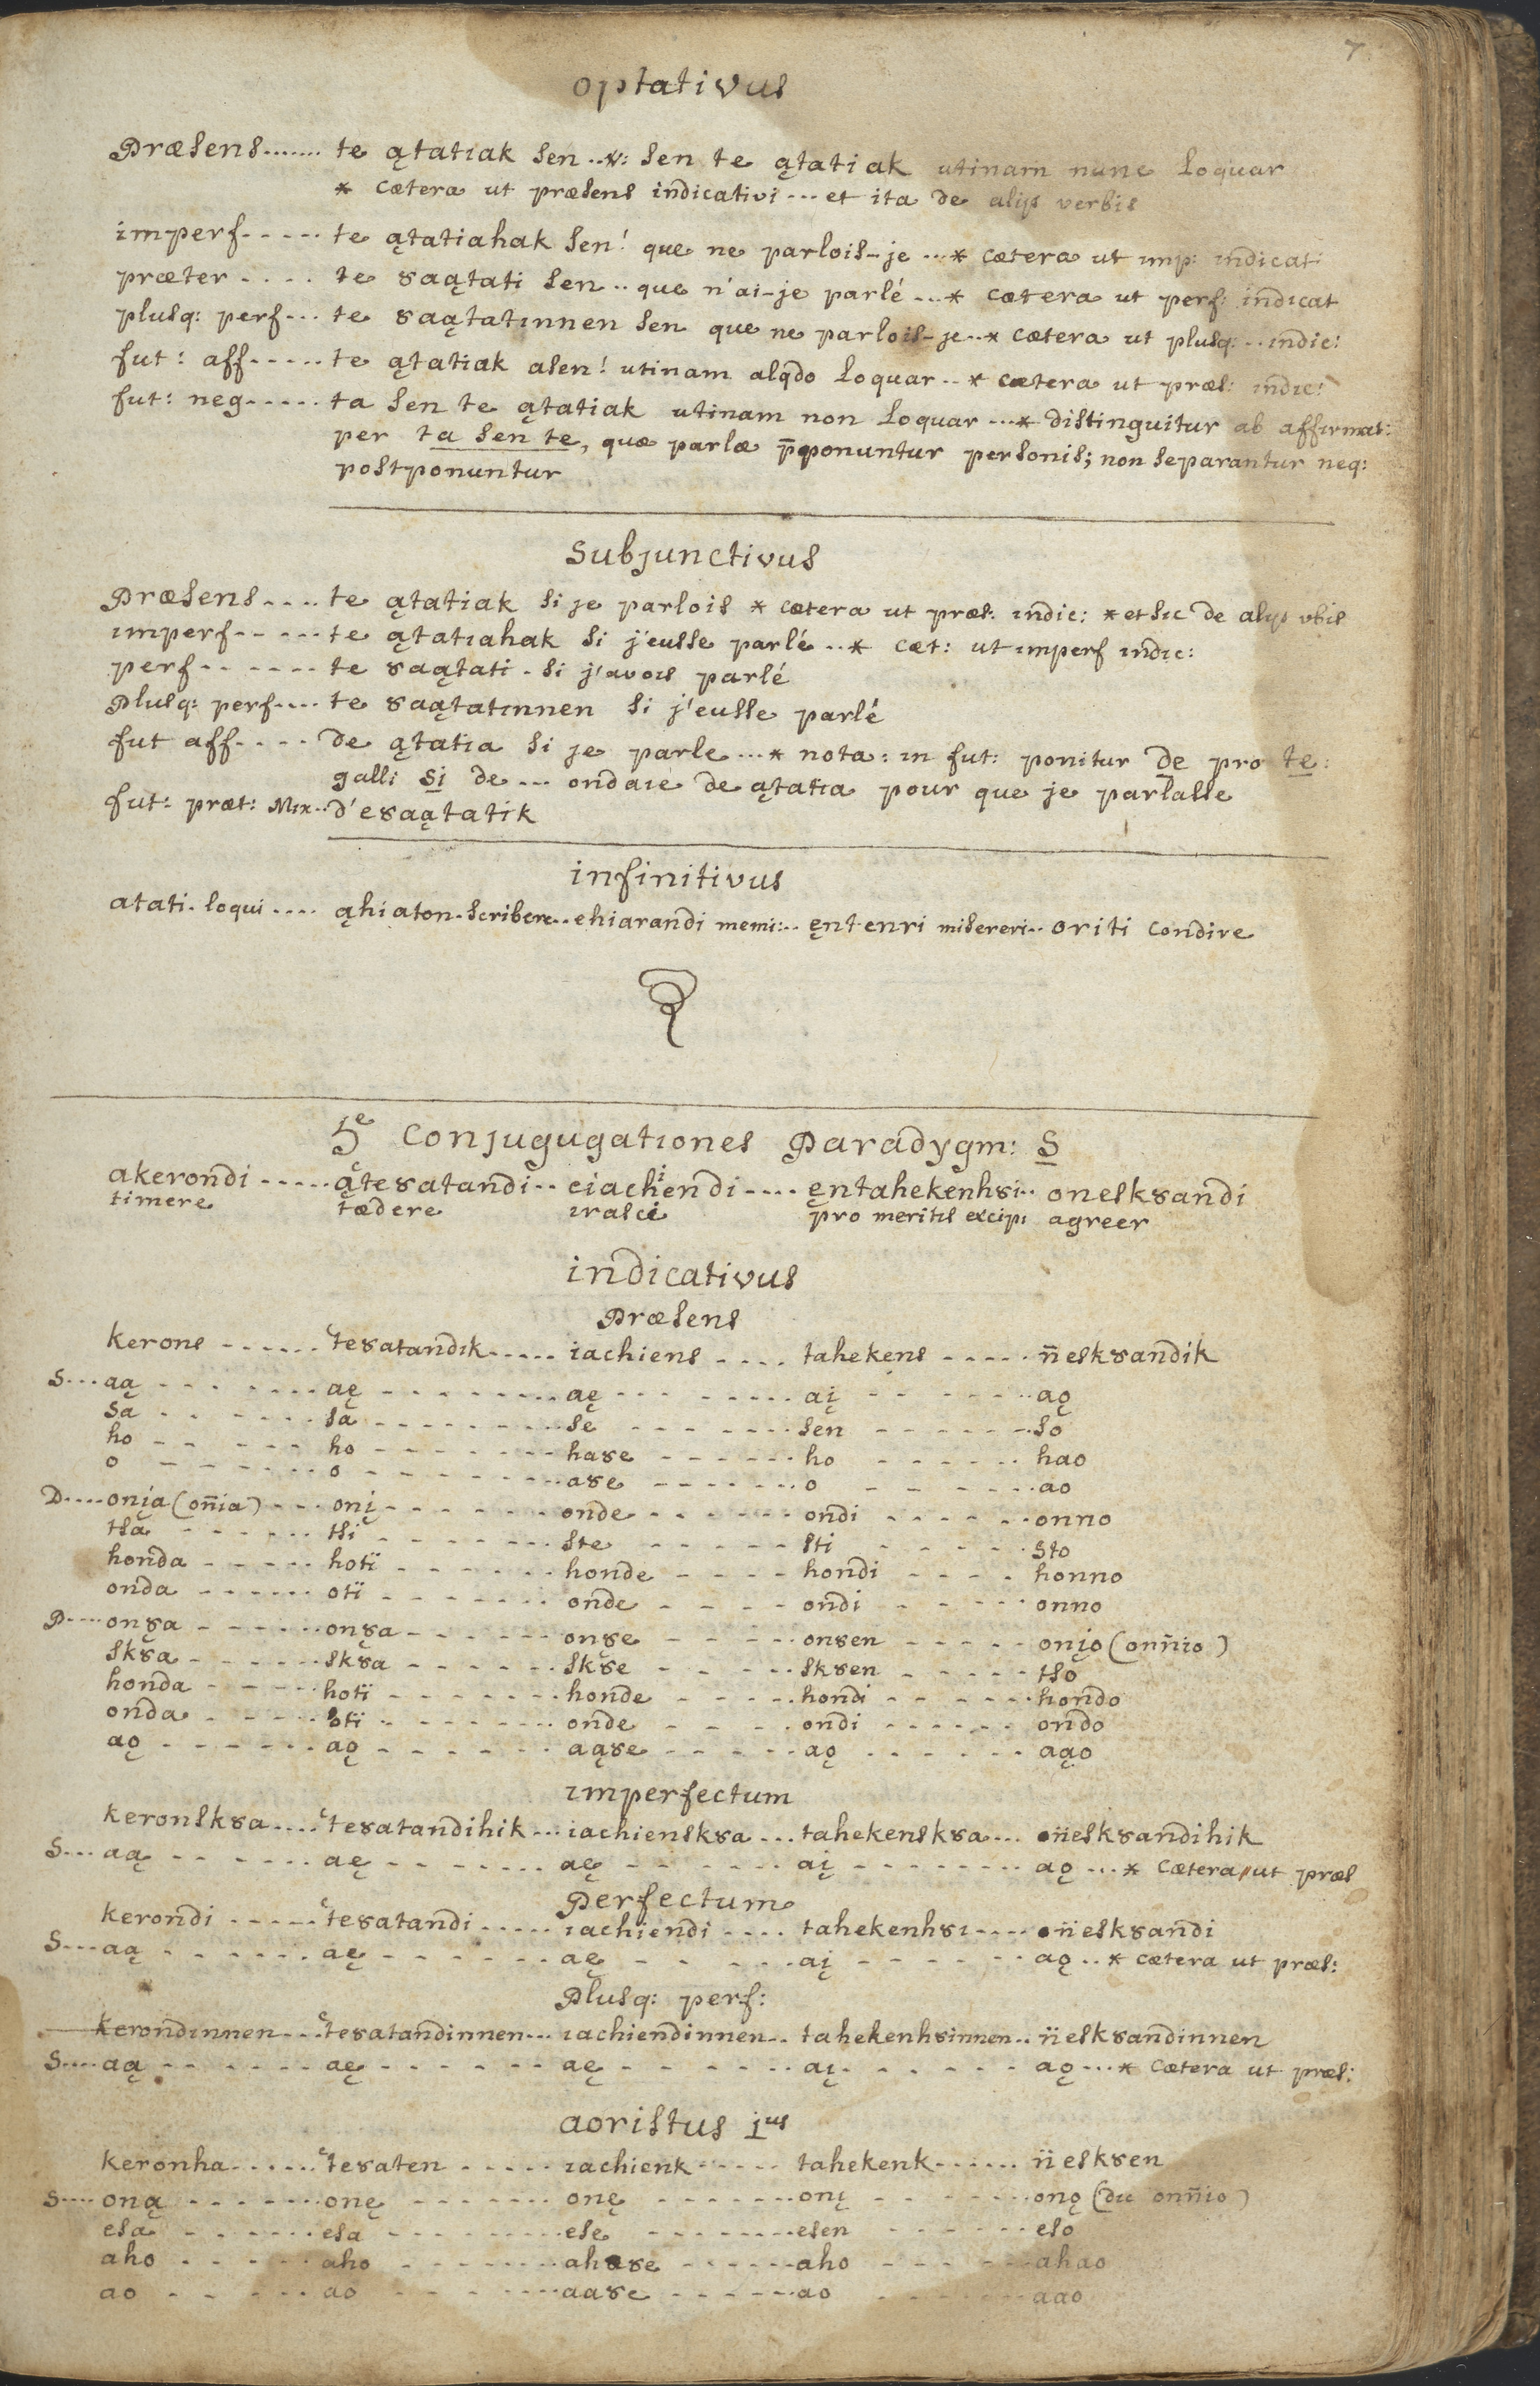 7
optativus
Præsens....... te ątatiak sen ..v: sen te ątatiak utinam nunc loquar
* cætera ut præsens indicativi ... et ita de alijs verbis
imperf..... te ątatiahak sen! que ne parlois-je ...* cætera ut imp: indicati
præter .... te ȣaątati sen .. que n'ai-je parlé ...* cætera ut perf: indicat
plusq: perf... te ȣaątatinnen sen que ne parlois-je ..* cætera ut plusq: .. indic:
fut: aff..... te ątatiak asen! utinam alqdo loquar .. * cætera ut præs: indic:
fut: neg..... ta sen te ątatiak utinam non loquar ...* distinguitur ab affirmat:
per ta sen te, quæ parlæ p̄ponuntur personis; non separantur neq:
postponuntur
subjunctivus
Præsens.... te ątatiak si je parlois * cætera ut præs: indic: * et sic de alijs vbis
imperf...... te ątatiahak si j'eusse parlé ..* cæt: ut imperf indic:
perf....... te ȣaątati . si j'avois parlé
Plusq: perf.... te ȣaątatinnen si j'eusse parlé
fut aff.... de ątatia si je parle ...* nota: in fut: ponitur de pro te:
galli si de ... ondaie de ątatia pour que je parlasse
fut: præt: Mix.. d'eȣaątatik
infinitivus
atati. loqui .... ąhiaton. scribere.. ehiarandi memi:.. ęntenri misereri.. oriti condire
5e conjugugationes Paradygm: S
akerondi ..... ąteȣatandi .. eiachiendi .... ęntahekenhȣi.. oneskȣandi
timere tædere irasci pro meritis excip: agreer
indicativus
Præsens
kerons ...... teȣatandik ..... iachiens .... tahekens ..... n̈eskȣandik
S... aą ....... aę ......... aę ........ aį ....... aǫ
sa ...... sa ......... se ........ sen ....... so
ho ...... ho ........ haȣe ...... ho ...... hao
o ....... o ......... aȣe ....... o ....... ao
D.... onįa (on̈ia) ... onį ....... onde ...... ondi ...... onno
tsa ...... tsi ........ ste ...... sti ...... sto
honda ..... hotï ....... honde .... hondi .... honno
onda ...... otï ........ onde .... ondi ..... onno
P.... onȣ̨a ...... onȣ̨a ....... onȣ̨e ..... onȣen ..... onįo (onn̈io)
skȣa ...... skȣa ....... skȣe ..... skȣen ..... tso
honda ..... hotï ........ honde ..... hondi ...... hondo
onda ..... otï ........ onde .... ondi ...... ondo
aǫ ...... aǫ ....... aąȣe ..... aǫ ...... aąo
imperfectum
keronskȣa .... teȣatandihik ... iachienskȣa ... tahekenskȣa ... n̈eskȣandihik
S... aą ...... aę ........ aę ...... aį ........ aǫ ... * cætera ut præs
Perfectum
kerondi ..... teȣatandi ..... iachiendi .... tahekenhȣi .... n̈eskȣandi
S.... aą ...... aę ....... aę ...... aį ...... aǫ .. * cætera ut præs:
Plusq: perf:
kerondinnen ... teȣatandinnen ... iachiendinnen .. tahekenhȣinnen .. n̈eskȣandinnen
S.... aą ...... aę ...... aę ....... aį ...... aǫ ... * cætera ut præs:
aoristus 1us
keronha ...... teȣaten ..... iachienk ..... tahekenk ...... n̈eskȣen
S.... oną ....... onę ....... onę ....... onį ....... onǫ (du onn̈io)
esa ....... esa ......... ese ........ esen ...... eso
aho ...... aho ........ ahaȣe ...... aho ...... ahao
ao ...... ao ........ aaȣe ....... ao ...... aao